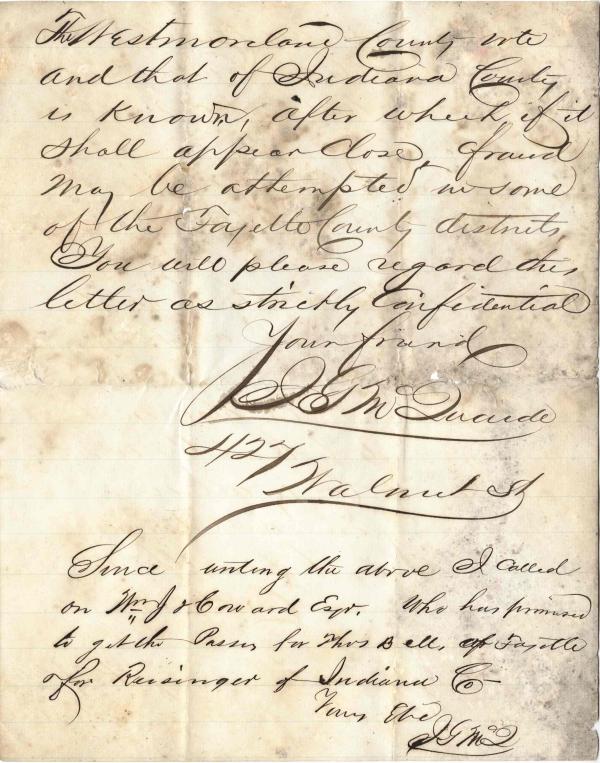 The Westmoreland County vote
and that of Indiana County
is known, after which, if it
shall appear close, fraud
may be attempted in some
of the Fayette County districts,
You will please regard this
letter as strictly Confidential
Your friend
J G Mc Quaide
427 Walnut St
Since writing the above I called
on Wm J Howard Esqr. Who has promised
to get the Passes for Thos Bell, of Fayette
& for Reisinger of Indiana Co
Yours
J G Mc Q